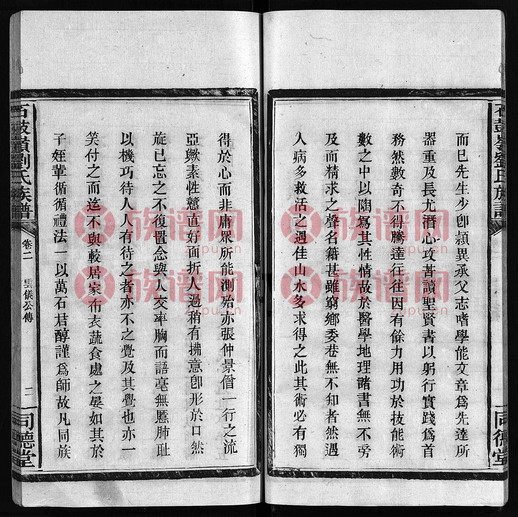 石鼓嶺劉氏族譜
同德堂
而已先生少卽穎異承父志嗜學能文章爲先達所
器重及長尤潛心攻苦讀聖賢書以躬行實踐爲首
務然數奇不得騰達往往因有餘力用功於技能術
數之中以陶寫其性情故於醫學地理諸書無不旁
及而精求之聲名籍甚雖窮鄉委巷無不聞其名者
人病多救活之遇佳山水多求得之此其術必有獨
得於心而非庸眾所能測殆亦張仲景僧一行之流
亞歟素性蹇直好面折人過稍有拂意卽形於口然
旋已忘之不復置念與人交率胸而語毫無腏肺
以機巧待人人有待之者亦不之覺及其覺也亦一
笑付之而迄不與較居家布衣蔬食處之晏如其於
子姪輩循循禮法一以萬石君醇謹爲師故凡同族
石鼓嶺劉氏族譜
卷二
雲儀公傳
二
同德堂
族譜网
族譜网
族譜网